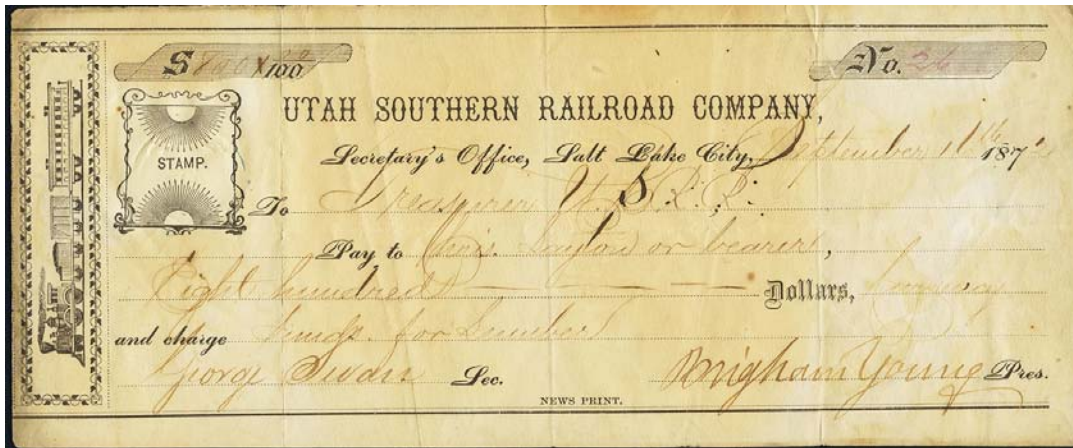 $ 800 X/100 No. 26
UTAH SOUTHERN RAILROAD COMPANY,
STAMP.
Secretary's Office, Salt Lake City, September 16th 1872
To Treasurer U. S. R. R.
Pay to Chris. Layton or bearer,
Eight hundred Dollars, Company
and charge funds for Lumber
George Swan Sec. Brigham Young Pres.
NEWS PRINT.